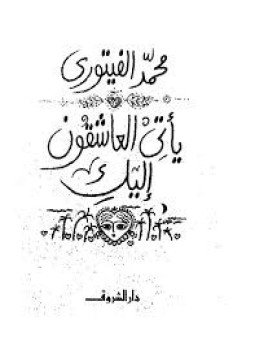 محمّد الفيتورى
يأتى العاشقون
إليكِ
دار الشروق